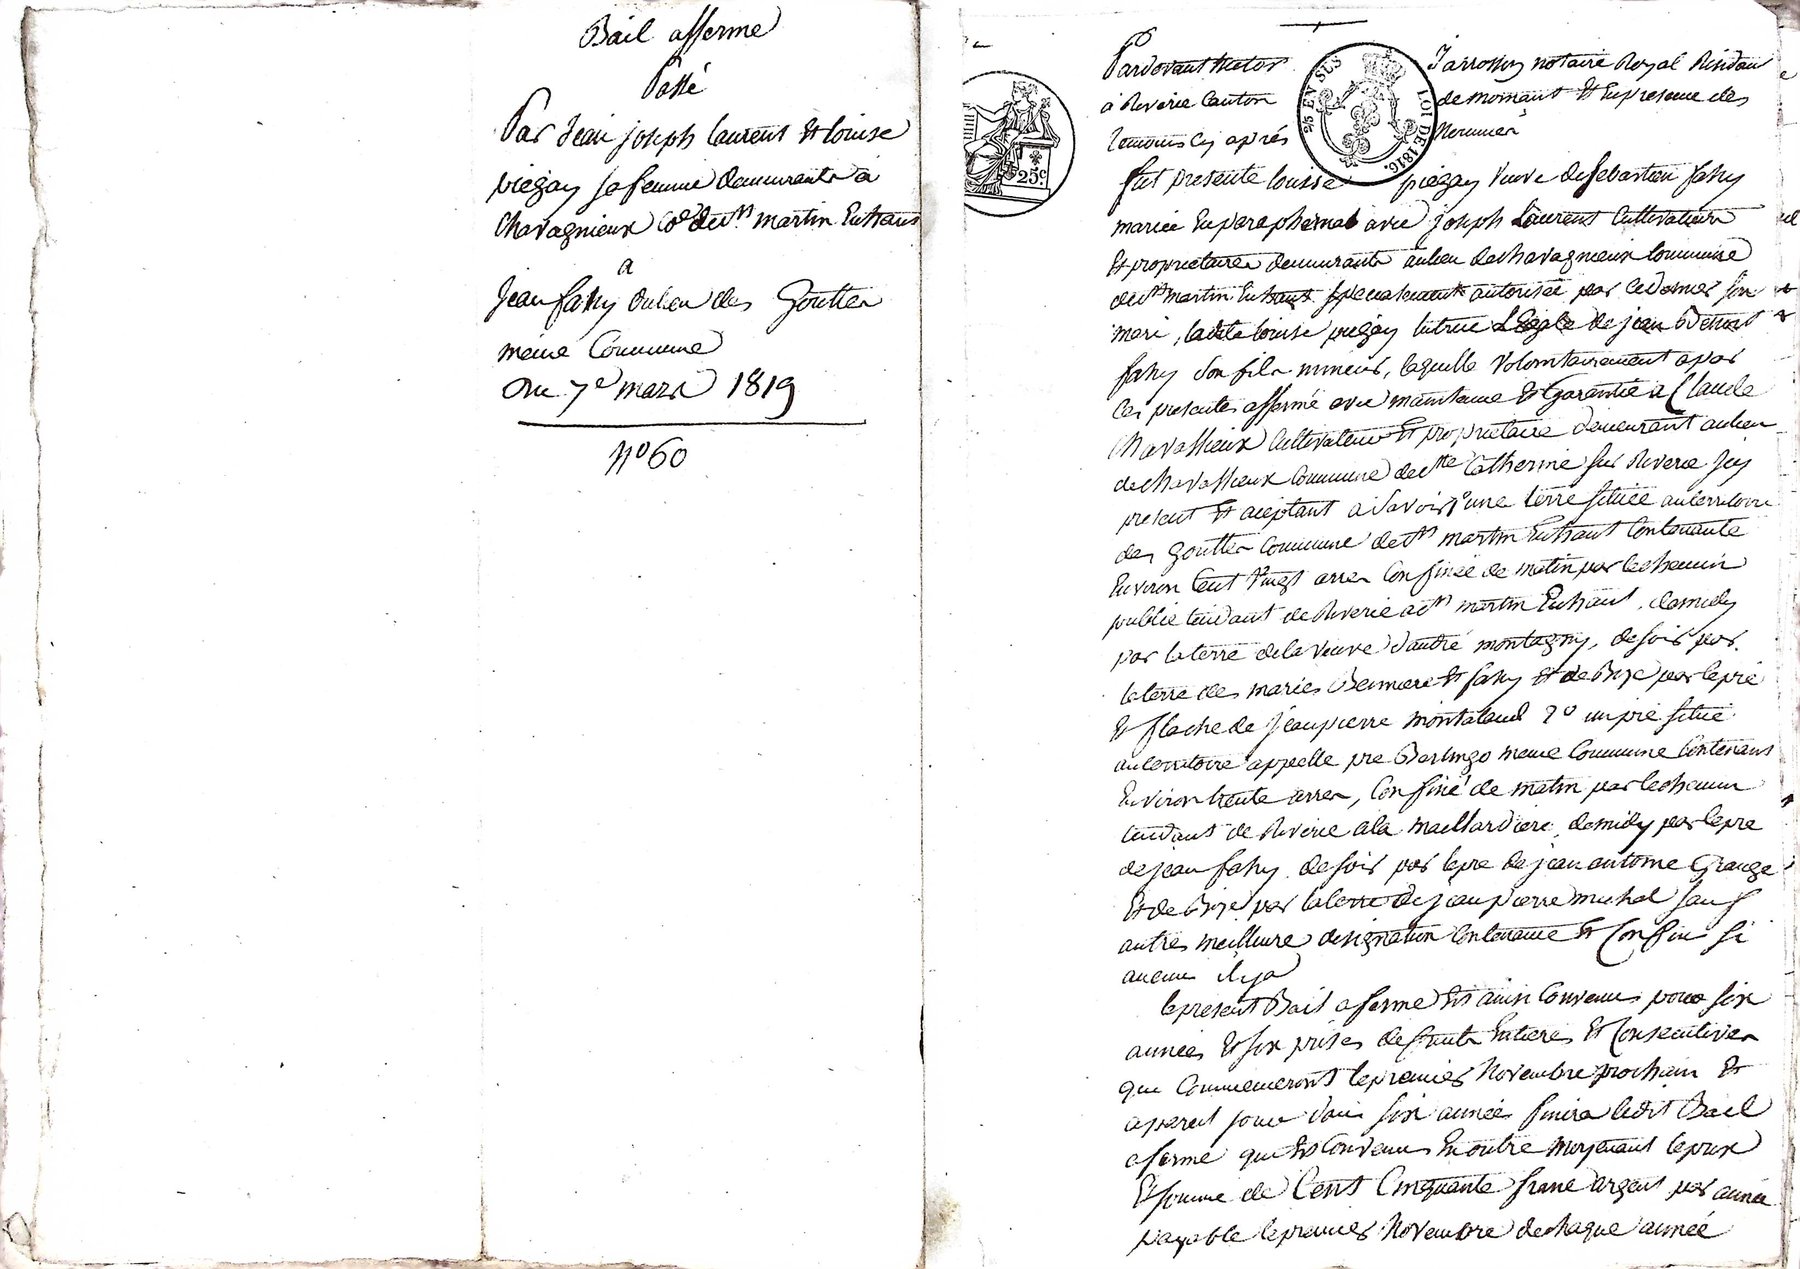 Bail afferme
Passé
Par Jean joseph laurent Et louise
piegay sa femme demeurants a
Chavagnieux Cne de st martin En haut
a
Jean fahy du lieu des Goutter
meme Commune
du 7e mars 1819
No 60
Pardevant Jarrosson notaire Royal Residant
à Riverie Canton de mornant Et En presence des
temoins cy aprés Nommés
2/5 EN SUS LOI DE 1816.
25c
fut presente louise piegay veuve de sebastien fahy
mariée En paraphernal avec joseph Laurent Cultivateur
Et proprietaires demeurants au lieu de chavagnieux Commune
de st martin En haut specialement autorisée par ce dernier son
mari, ladite louise piegay tutrice Légale de jean
fahy son fils mineur, laquelle volontairement a par
Ces presentes affermé avec maintenue Et Garantie a Claude
Chavassieux Cultivateur Et proprietaire demeurant au lieu
de chavassieux Commune de ste Catherine sur Riverie Jcy
present Et aceptant a Savoir 1o une terre située au territoire
des Goutter Commune de st martin En haut Contenante
Environ Cent vingt arres Confinée de matin par le chemin
public tendant de Riverie a st martin En haut, de midy
par la terre de la veuve d'andré montagny, de soir par
la terre des mariés Et fahy Et de Bize par le pré
Et flache de jean pierre montaland 2o un pré situé
au territoire appellé pre Berlingo meme Commune Contenant
Environ trente arres, Confiné de matin par le chemin
tendant de Riverie a la maillardiere, de midy par le pre
de jean fahy, de soir par le pre de jean antoine Grange
Et de Bize par la terre de jean pierre michal sauf
autres meilleure designation Contenance Et Confins si
aucun il y a
le present Bail a ferme Est ainsi Convenu pour six
années Et six prises de fruits Entieres Et Consecutives
que Commenceront le premier Novembre prochain Et
a pareil jour d'ans six années finira ledit Bail
a ferme que Est Convenu En outre moyenant le prix
Et somme de Cent Cinquante franc argent par année
payable le premier Novembre de chaque année